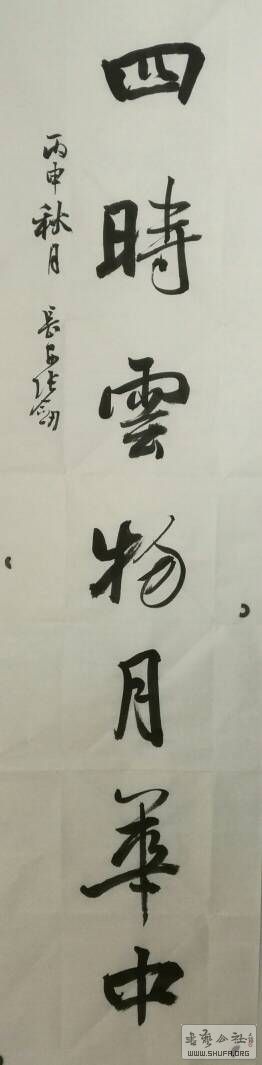 四時雲物月華中
丙申秋月 長安張劍
書法公社
WWW.SHUFA.ORG